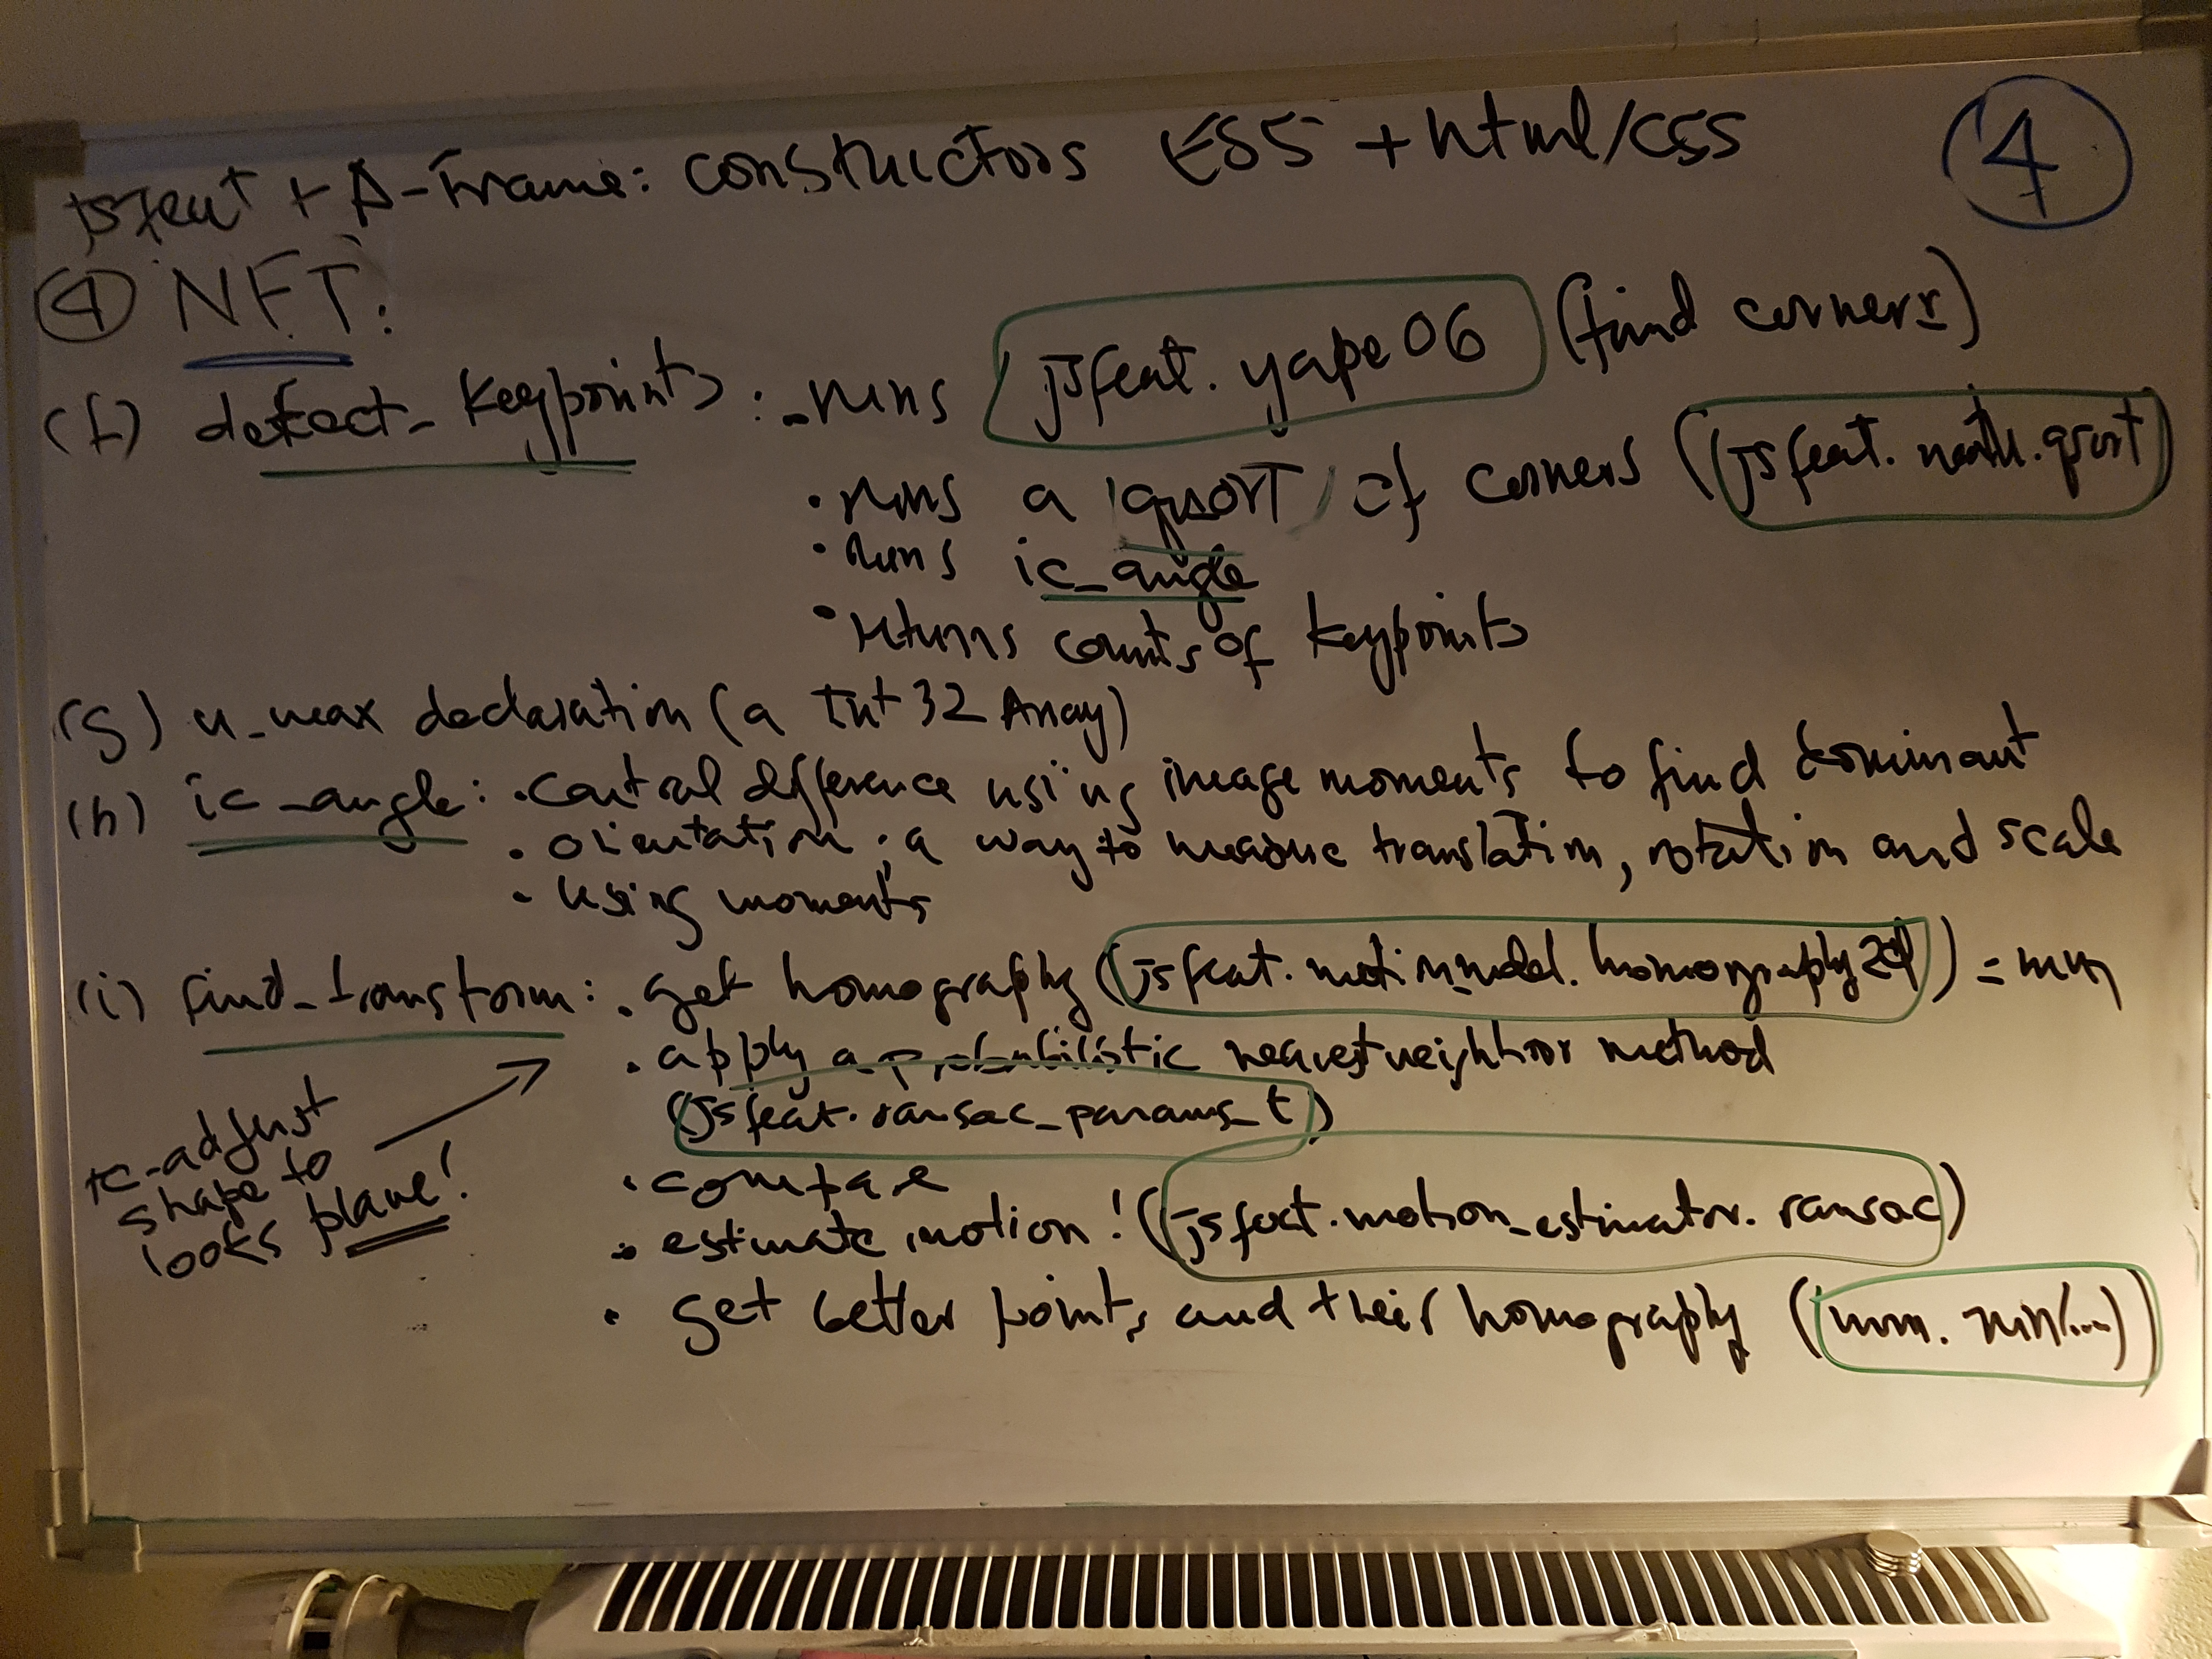 jsfeat + A-Frame: constructors ES5 + html/css
4
④ NFT:
(f) detect_keypoints: - runs jsfeat.yape06 (find corners)
· runs a 'qsort' of corners (jsfeat.math.qsort)
· runs ic_angle
· returns counts of keypoints
(g) u_max declaration (a Int32Array)
(h) ic_angle: · central difference using image moments to find dominant
· orientation; a way to measure translation, rotation and scale
· using moments
(i) find_transform: · get homography (jsfeat.motion_model.homography2d) = mm
· apply a probabilistic nearest neighbor method
(jsfeat.ransac_params_t)
re-adjust
shape to
looks plane!
· compare
· estimate motion! (jsfeat.motion_estimator.ransac)
· get better points and their homography (mm.run(...))